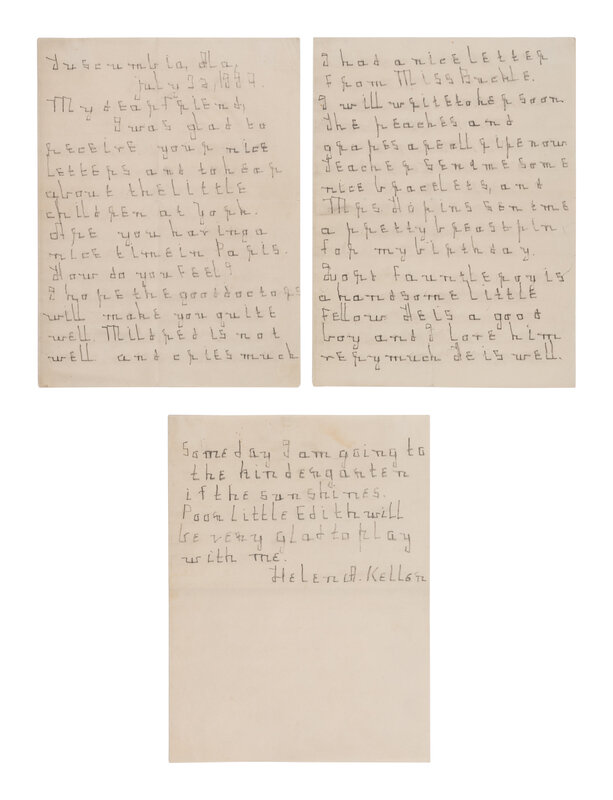 Tuscumbia, Ala,
July 22, 1889.
My dear friend,
I was glad to
receive your nice
letters and to hear
about the little
children at York.
Are you having a
nice time in Paris.
How do you feel?
I hope the good doctors
will make you quite
well. Mildred is not
well and cries much
I had a nice letter
from Miss Buckle.
I will write to her soon.
The peaches and
grapes are all ripe now
Teacher send me some
nice bracelets, and
Mrs. Hopins sent me
a pretty breastpin
for my birthday.
Lort Fauntleroy is
a handsome little
fellow He is a good
boy and I love him
very much He is well.
Some day I am going to
the kindergarten
if the sun shines.
Poor little Edith will
be very glad to play
with me.
Helen A. Keller